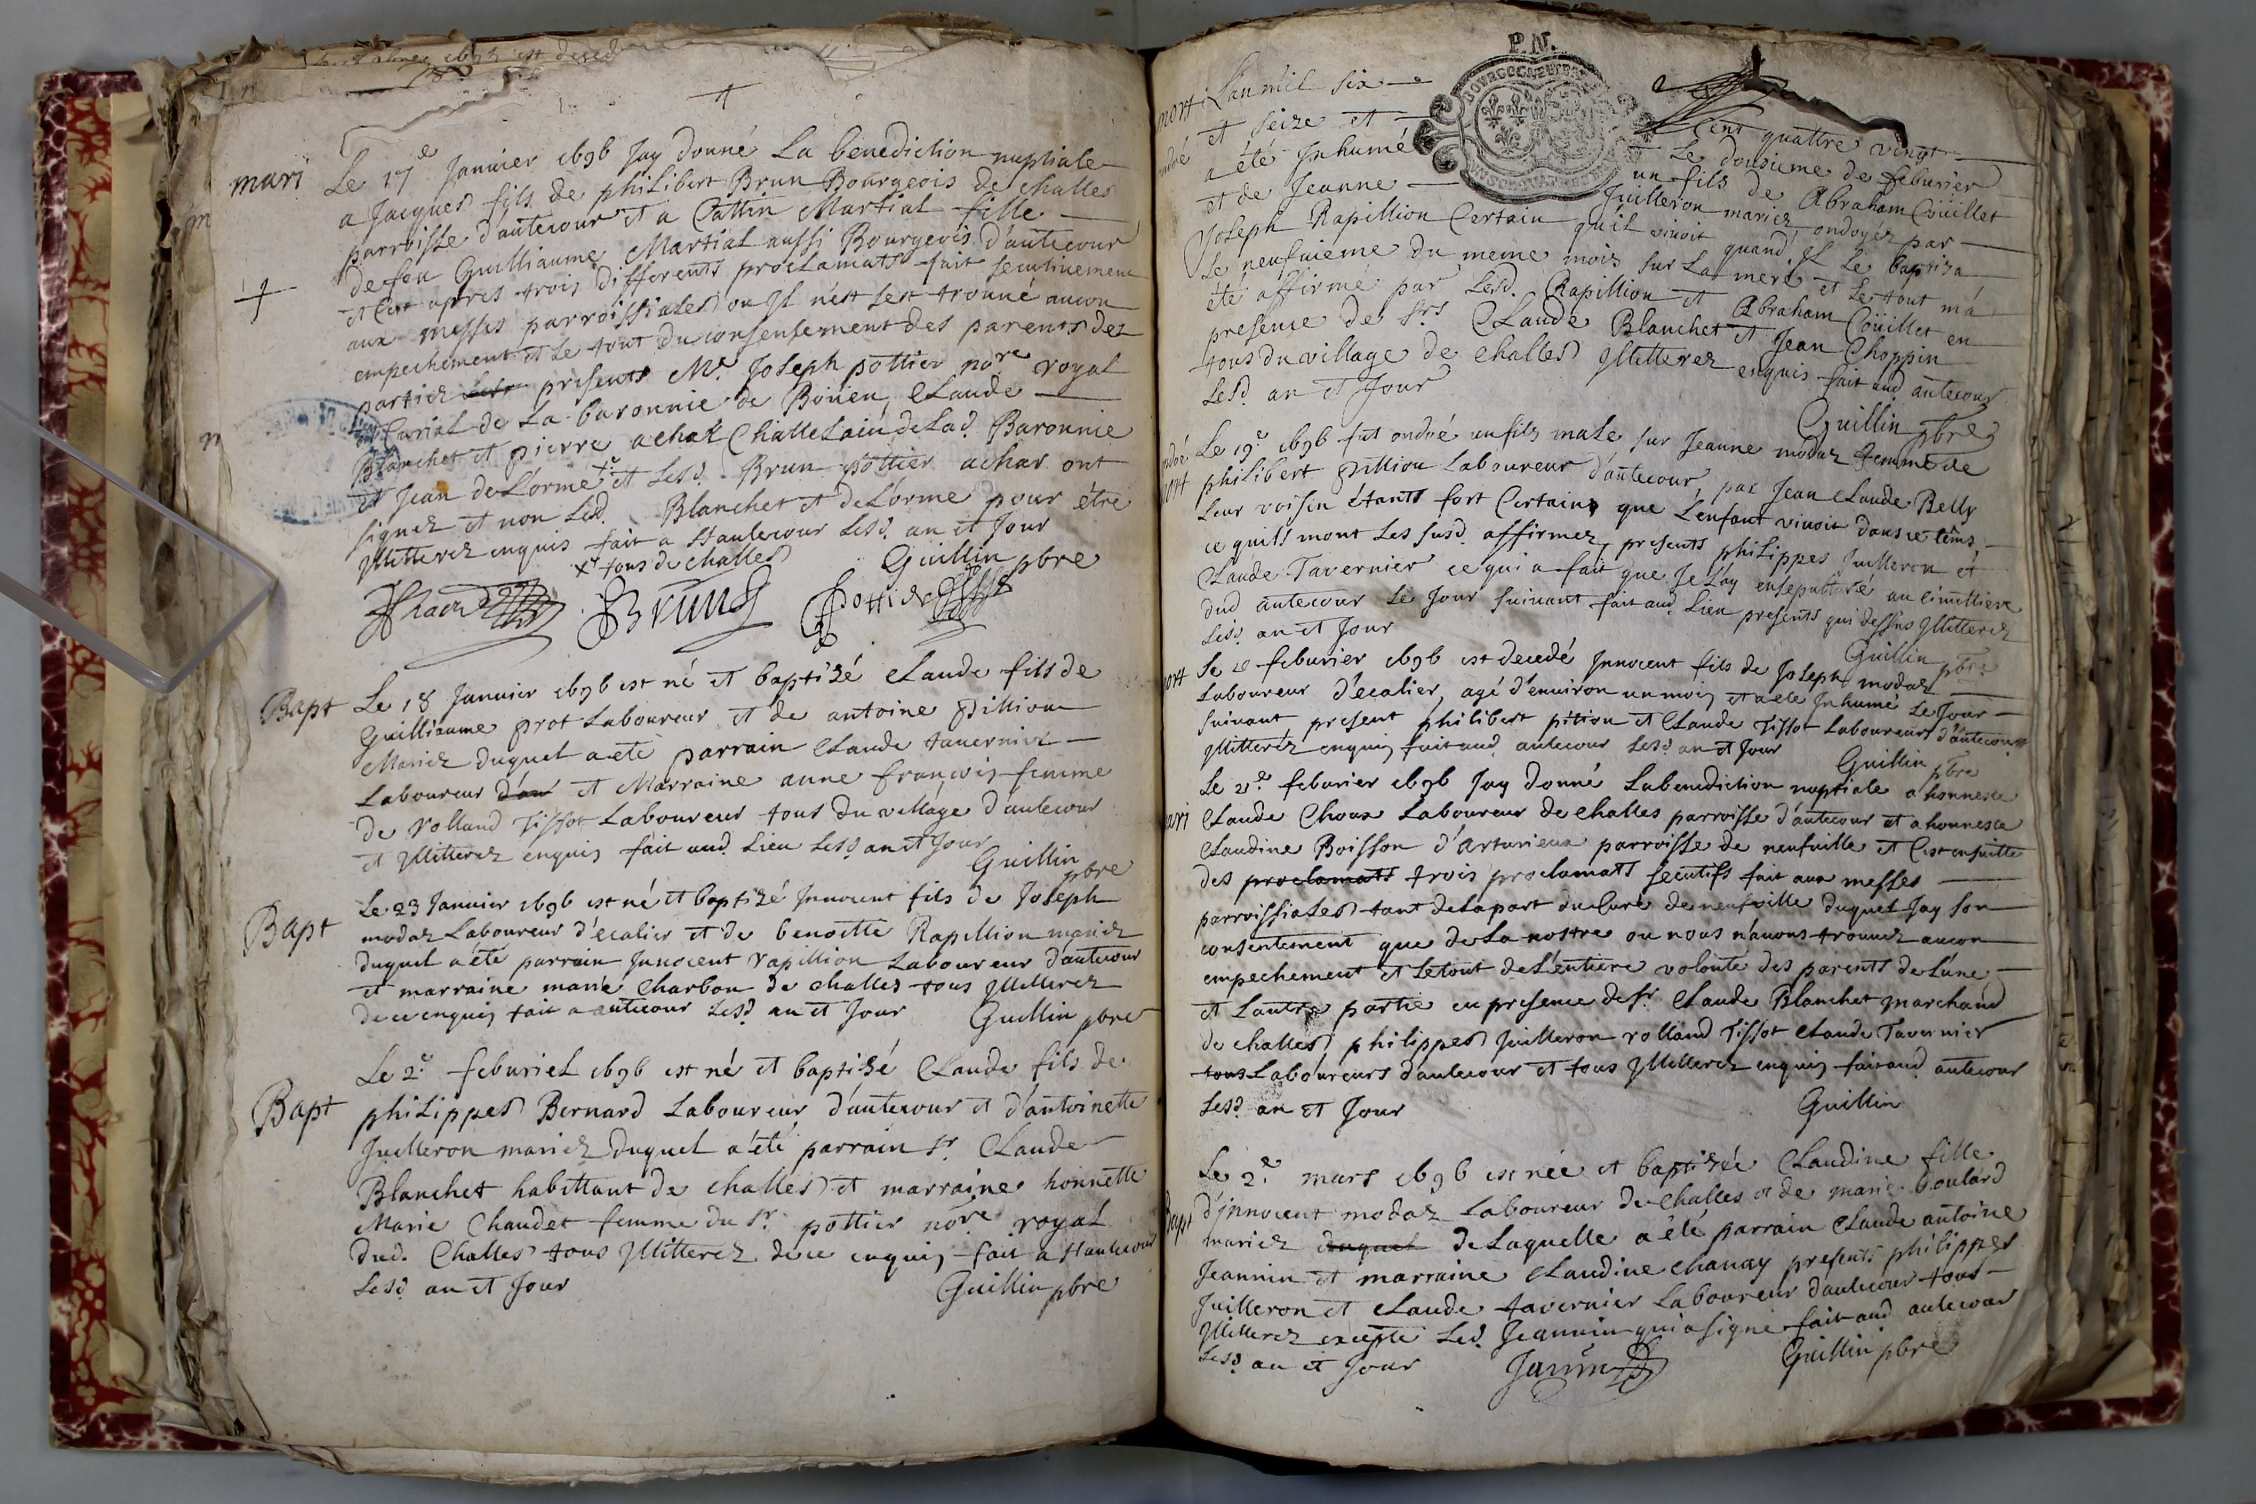 mari
Le 17e Januier 1696 Jay donné La benediction nuptiale
a Jacques fils de philibert Brun Bourgeois de challes
parroisse d'autecour et a Cattin Martial fille
de feu Guilliaume Martial aussi Bourgeois d'autecour
et C'est apres trois differents proclamats fait secutivement
aux messes parroissiales ou Jl n'est s'est trouué aucun
empechement et Le tout du consensement des parents des
parties presents Me Joseph pottier nore royal
et Curial de La baronnie de Boüen, Claude
Blanchet et pierre achat Chattelain de Lad. Baronnie
et Jean de L'orme xe et Lesd. Brun pottier achar ont
signez et non Lesd. Blanchet et de L'orme pour étre
Jllitterez enquis fait a Hautecour Lesd. an et Jour
xe tous de challes
Guillin pbre
Brun
Pottier
Bapt
Le 18 Januier 1696 est né et baptizé Claude fils de
Guilliaume prot Laboureur et de antoine pittion
Mariez duquel a été parrain Claude tauernier
Laboureur d'au et Marraine anne françois femme
de rolland Tissot Laboureur tous du village d'autecour
et Jllitterez enquis fait aud. Lieu Lesd. an et Jour
Guillin pbre
Bapt
Le 23 Januier 1696 est né et baptizé Jnnocent fils de Joseph
modaz Laboureur d'écalier et de benoitte Rapillion mariez
duquel a été parrain Jnnocent rapillion Laboureur d'autecour
et marraine marie Charbon de challes tous Jllitterez
de ce enquis fait a autecour Lesd. an et Jour
Guillin pbre
Bapt
Le 2e feburiel 1696 est né et baptizé Claude fils de
philippes Bernard Laboureur d'autecour et d'antoinette
Juilleron mariez duquel a été parrain Sr. Claude
Blanchet habittant de challes et marraine honnette
Marie Chaudet femme du Sr. pottier nore royal
dud. Challes tous Jllitterez de ce enquis fait a Hautecour
Lesd. an et Jour
Guillin pbre
P.N.
mort
L'an mil six Cent quattre vingt
et seize et Le dousieme de feburier
a été Jnhumé un fils de Abraham Coüillet
et de Jeanne Juilleron mariez, ondoyez par
Joseph Rapillion Certain qu'il viuoit quand Jl Le baptiza
Le neufuieme du meme mois sur La mere et Le tout m'a
été affirmé par Lesd. Rapillion et Abraham Coüillet en
presence de Srs Claude Blanchet et Jean Choppin
tous du village de challes Jllitterez enquis fait aud. autecour
Lesd. an et Jour
Guillin pbre
mort
Le 19e 1696 fut ondoé un fils male sur Jeanne modaz femme de
philibert pittion Laboureur d'autecour, par Jean Claude Belly
Leur voisin étants fort Certains que L'enfant viuoit dans ce tems
ce qu'ils m'ont Les susd. affirmez, presents philippes Juilleron et
Claude Tavernier ce qui a fait que Je L'ay ensepulturé au cimettiere
dud. autecour Le Jour suiuant fait aud. Lieu presents qui dessus Jllitterez
Lesd. an et Jour
Guillin pbre
mort
Le 20 feburier 1696 est decedé Jnnocent fils de Joseph modaz
Laboureur d'ecalier, agé d'enuiron un mois et a été Jnhumé Le Jour
suiuant present philibert pition et Claude Tissot Laboureurs d'autecour
Jllitterez enquis fait aud. autecour Lesd. an et Jour
Guillin pbre
mari
Le 21e feburier 1696 Jay donné La benediction nuptiale a honneste
Claude Choux Laboureur de challes parroisse d'autecour et a honneste
Claudine Boisson d'arturieux parroisse de neufuille et C'est ensuitte
des proclamats trois proclamats secutifs fait aux messes
parroissiales tant de La part du Curé de neufville duquel Jay son
consentement que de La nostre ou nous n'auons trouuez aucun
empechement et Le tout de L'entiere volonté des parents de L'une
et L'autre partie en presence de Sr. Claude Blanchet marchand
de challes philippes Juilleron rolland Tissot Claude Tavernier
tous Laboureurs d'autecour et tous Jllitterez enquis fait aud. autecour
Lesd. an et Jour
Guillin
Bapt
Le 2e mars 1696 est née et baptizée Claudine fille
d'Jnnocent modaz Laboureur de Challes et de marie boulard
mariez duquel de Laquelle a été parrain Claude antoine
Jeannin et marraine Claudine chanay presents philippes
Juilleron et Claude tavernier Laboureur d'autecour tous
Jllitterez excepté Led. Jeannin qui a signé fait aud. autecour
Lesd. an et Jour
Guillin pbre